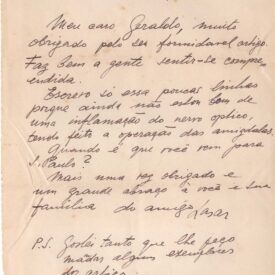 Meu caro Geraldo, muito
obrigado pelo seu formidavel artigo.
Faz bem a gente sentir-se compre
endida.
Escrevo só essa poucas linhas
porque ainda não estou bom de
uma inflamação do nervo optico,
tendo feito a operação das amigdalas.
Quando é que você vem para
S. Paulo?
Mais uma vez obrigado e
um grande abraço à você e sua
familia do amigo Lasar
P.S. Gostei tanto que lhe peço
mandar alguns exemplares
do artigo